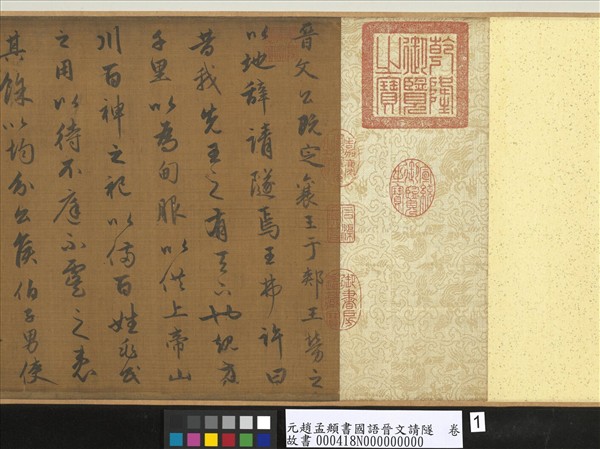 乾隆御覽之寶
宣統御覽之寶
晉文公既定襄王于郟王勞之
以地辭請隧焉王弗許曰
昔我先王之有天下也規方
千里以為甸服以供上帝山
川百神之祀以備百姓兆民
之用以待不庭不虞之患
其餘以均分公侯伯子男使
元趙孟頫書國語晉文請隧 卷
故書 000418N000000000
1